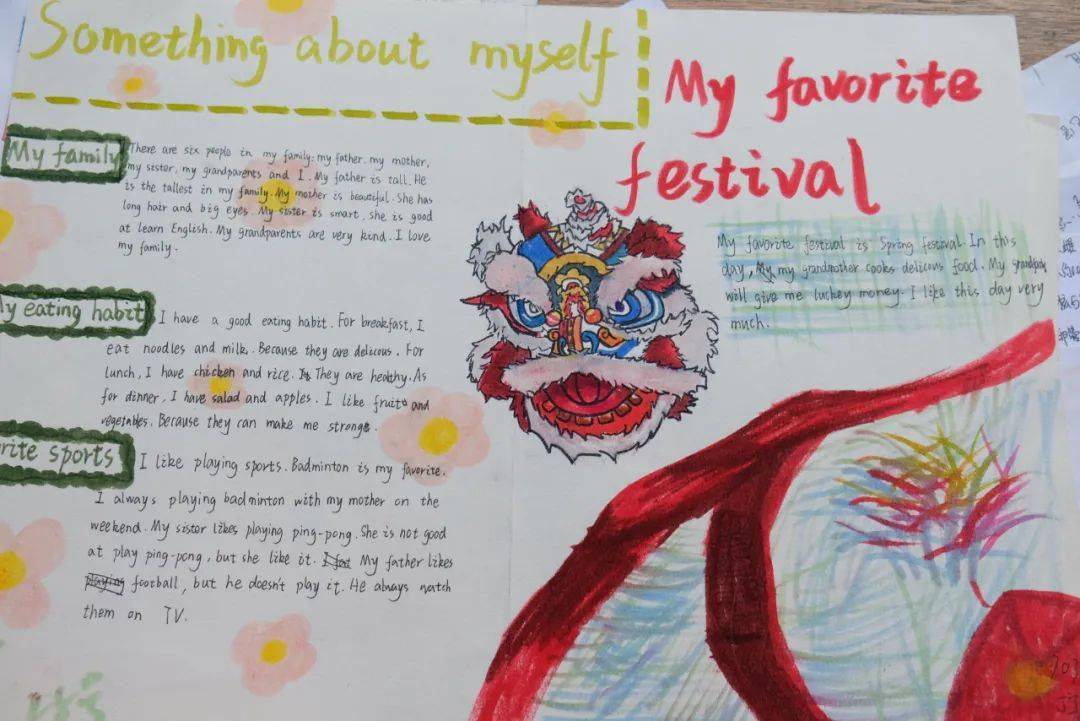 Something about myself
My family
There are six people in my family: my father, my mother,
my sister, my grandparents and I. My father is tall. He
is the tallest in my family. My mother is beautiful. She has
long hair and big eyes. My sister is smart, she is good
at learn English. My grandparents are very kind. I love
my family.
My eating habit
I have a good eating habit. For breakfast, I
eat noodles and milk. Because they are delicous. For
lunch, I have chicken and rice. They are healthy. As
for dinner, I have salad and apples. I like fruit and
vegetables. Because they can make me strong.
rite sports
I like playing sports. Badminton is my favorite.
I always playing badminton with my mother on the
weekend. My sister likes playing ping-pong. She is not good
at play ping-pong, but she like it. My father likes
playing football, but he doesn't play it. He always watch
them on TV.
My favorite
festival
My favorite festival is Spring festival. In this
day, my grandmother cooks delicous food. My
will give me luckey money. I like this day very
much.